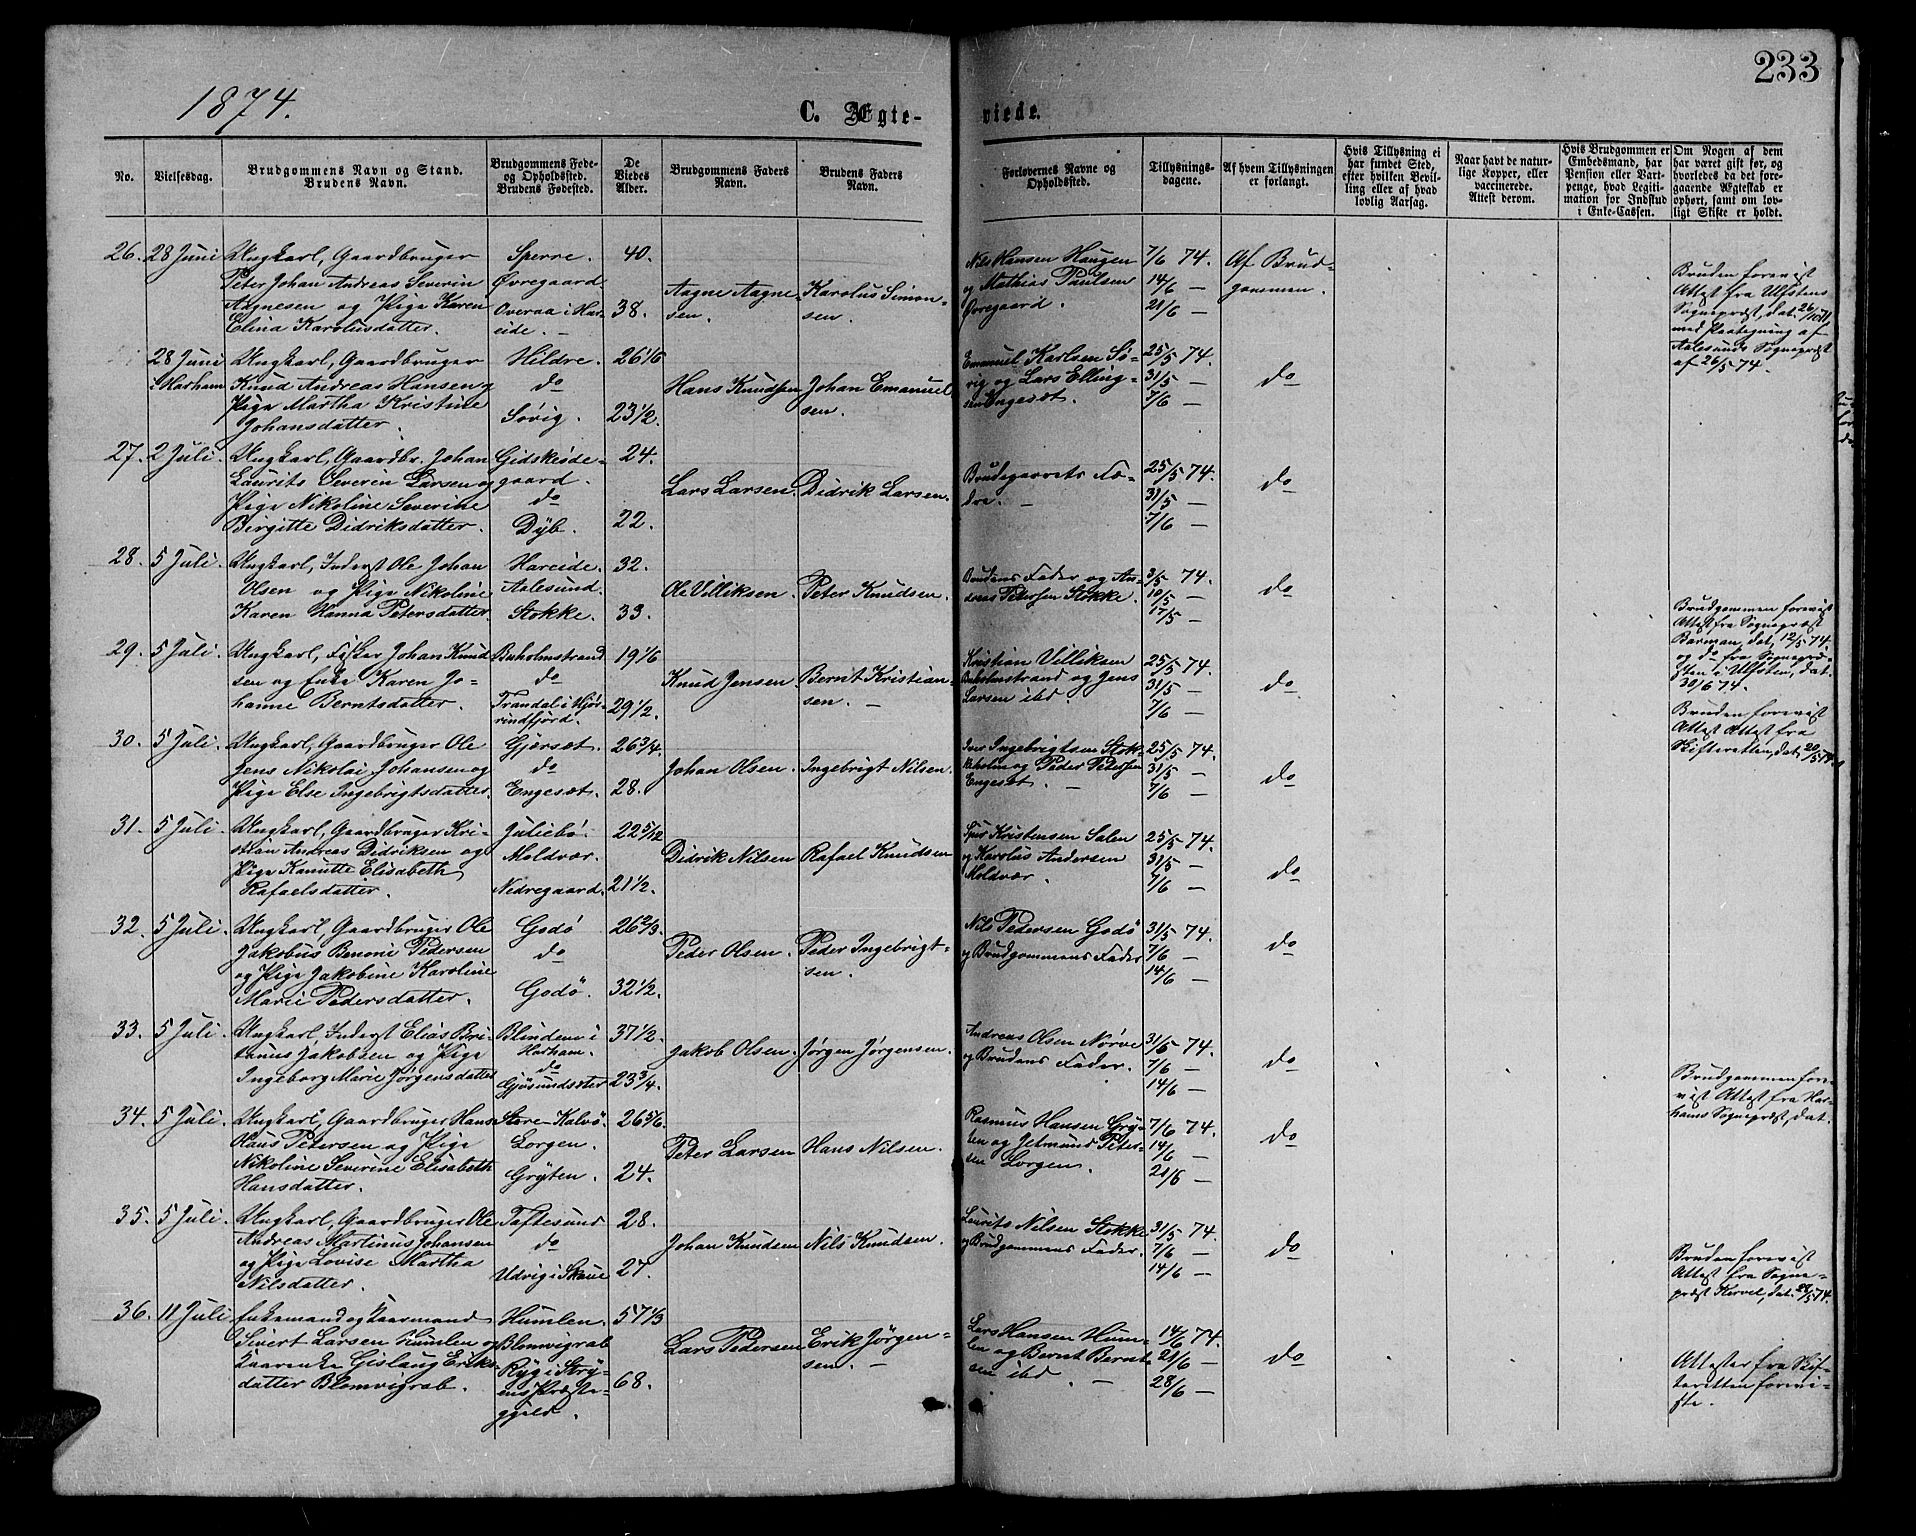 233
1874.
C. Ægte-
viede.
No.
Vielsesdag.
Brudgommens Navn og Stand.
Brudens Navn.
Brudgommens Føde-
og Opholdssted.
Brudens Fødested.
De
Viedes
Alder.
Brudgommens Faders
Navn.
Brudens Faders
Navn.
Forlovernes Navne og
Opholdssted.
Tillysnings-
dagene.
Af hvem Tillysningen
er forlangt.
Hvis Tillysning ei
har fundet Sted,
efter hvilken Bevil-
ling eller af hvad
lovlig Aarsag.
Naar havt de natur-
lige Kopper, eller
vaccinerede.
Attest derom.
Hvis Brudgommen er
Embedsmand, har
Pension eller Vart-
penge, hvad Legiti-
mation for Indskud
i Enke-Cassen.
Om Nogen af dem
har været gift før, og
hvorledes da det fore-
gaaende Ægteskab er
ophørt, samt om lov-
ligt Skifte er holdt.
26. 28 Juni
Ungkarl, Gaardbruger
Peter Johan Andreas Severin
Aagnesen og Pige Karen
Elina Karolusdatter.
Sperre.
Øvregaard
Overaa i Har-
eide. -
40.
38.
Aagne Aagne-
sen.
Karolus Simon-
sen.
Nils Hansen Haugen
og Mathias Paulsen
Øvregaard.
7/6 74.
14/6 -
21/6 -
Af Brud-
gommen.
Bruden forevist
Attest fra Ulfstens
Sognepræst, dat. 26/10
med Paategning af
Aalesunds Sognepræst
af 26/5 74.
28 Juni
i Harham
Ungkarl, Gaardbruger
Knud Andreas Hansen og
Pige Martha Kristine
Johansdatter.
Hildre.
do
Søvig.
26 1/6
23 1/2.
Hans Knudsen
Johan Emanuel
sen.
Emanuel Karlsen Sø-
vig og Lars Elling-
sen Engesæt.
25/5 74.
31/5 -
7/6 -
do
27. 2 Juli.
Ungkarl, Gaardbr. Johan
Laurits Severin Larsen og
Pige Nikoline Severine
Birgitte Didriksdatter.
Gidskeøde-
gaard.
do
Dyb.
24.
22.
Lars Larsen.
Didrik Larsen.
Brudeparrets Fæ-
dre. -
25/5 74.
31/5 -
7/6 -
do
28. 5 Juli.
Ungkarl, Inderst Ole Johan
Olsen og Pige Nikoline
Karen Hanna Petersdatter.
Hareide.
Aalesund.
Stokke.
32.
33.
Ole Villiksen.
Peter Knudsen.
Brudens Fader og An-
dreas Petersen Stokke.
3/5 74.
10/5 -
17/5 -
do
Brudgommen forevist
Attest fra Sognepræst
Barman, dat. 12/5 74.
og do fra Sognepræ-
sten i Ulfsten, dat.
30/6 74.
29. 5 Juli.
Ungkarl, Fisker Johan Knud
sen og Enke Karen Jo-
hanne Berntsdatter.
Buholmstrand
do
Trandal i Hjør-
rindfjord.
19 1/6
29 1/2.
Knud Jensen.
Bernt Kristian-
sen. -
Kristian Villiksen
Buholmstrand og Jens
Larsen ibd.
25/5 74.
31/5 -
7/6 -
do
Bruden forevist
Attest Attest fra
Skifteretten, dat. 20/5 74.
30. 5 Juli.
Ungkarl, Gaardbruger Ole
Jens Nikolai Johansen og
Pige Else Ingebrigtsdatter.
Gjørsæt.
do
Engesæt.
26 3/4.
28.
Johan Olsen.
Ingebrigt Nilsen.
Iver Ingebrigtsen Stok-
keholm og Peder Petersen
Engesæt. -
25/5 74.
31/5 -
7/6 -
do
31. 5 Juli.
Ungkarl, Gaardbruger Kri-
stian Andreas Didriksen og
Pige Kanutte Elisabeth
Rafaelsdatter.
Juliebø.
Moldvær.
Nedregaard.
22 5/12
21 1/2.
Didrik Nilsen
Rafael Knudsen
Sjur Kristensen Salen
og Karolus Andersen
Moldvær.
25/5 74.
31/5 -
7/6 -
do
32. 5 Juli.
Ungkarl, Gaardbruger Ole
Jakobus Benoni Pedersen
og Pige Jakobine Karoline
Marie Pedersdatter.
Godø
do
Godø.
26 2/3.
32 1/2.
Peder Olsen.
Peder Ingebrigt-
sen.
Nils Pedersen Godø
og Brudgommens Fader
31/5 74.
7/6 -
14/6 -
do
33. 5 Juli.
Ungkarl, Inderst Elias Bri-
tanus Jakobsen og Pige
Ingeborg Marie Jørgensdatter
Blindem i
Harham.
do
Gjøsundsæter
37 1/2.
23 3/4.
Jakob Olsen.
Jørgen Jørgensen.
Andreas Olsen Nørve
og Brudens Fader.
31/5 74.
7/6 -
14/6 -
do
Brudgommen fore-
vist Attest fra Har-
hams Sognepræst, dat.
34. 5 Juli.
Ungkarl, Gaardbruger Hans
Claus Petersen og Pige
Nikoline Severine Elisabeth
Hansdatter.
Store-Kalvø.
Lorgen.
Gryten.
26 5/6.
24.
Peter Larsen
Hans Nilsen.
Rasmus Hansen Gry-
ten og Jetmund Peter-
sen Lorgen.
7/6 74.
14/6 -
21/6 -
do
35. 5 Juli.
Ungkarl, Gaardbruger Ole
Andreas Martinus Johansen
og Pige Lovise Martha
Nilsdatter.
Toftesund
do
Udvig i Skoue
28.
27.
Johan Knudsen
Nils Knudsen.
Laurits Nilsen Stokke
og Brudgommens Fader.
31/5 74.
7/6 -
14/6 -
do
Bruden forevist
Attest fra Sogne-
præst Kervel, dat. 28/5 74.
36. 11 Juli
Enkemand og Kaarmand
Sivert Larsen Humlen og
Kaarenke Gislaug Eriks-
datter Blomvigrab.
Humlen.
Blomvigrab
Ryg i Stry-
ens Præste-
gjeld.
57 1/3
68.
Lars Pedersen
Erik Jørgen-
sen. -
Lars Hansen Hum-
len og Bernt Bernt-
sen ibd. -
14/6 74.
21/6 -
28/6 -
do
Attester fra Skif-
teretten forevi-
ste.